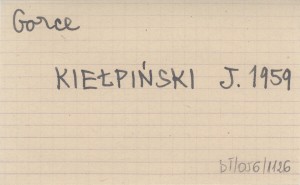 Gorce
KIEŁPIŃSKI J. 1959
bT/056/1126